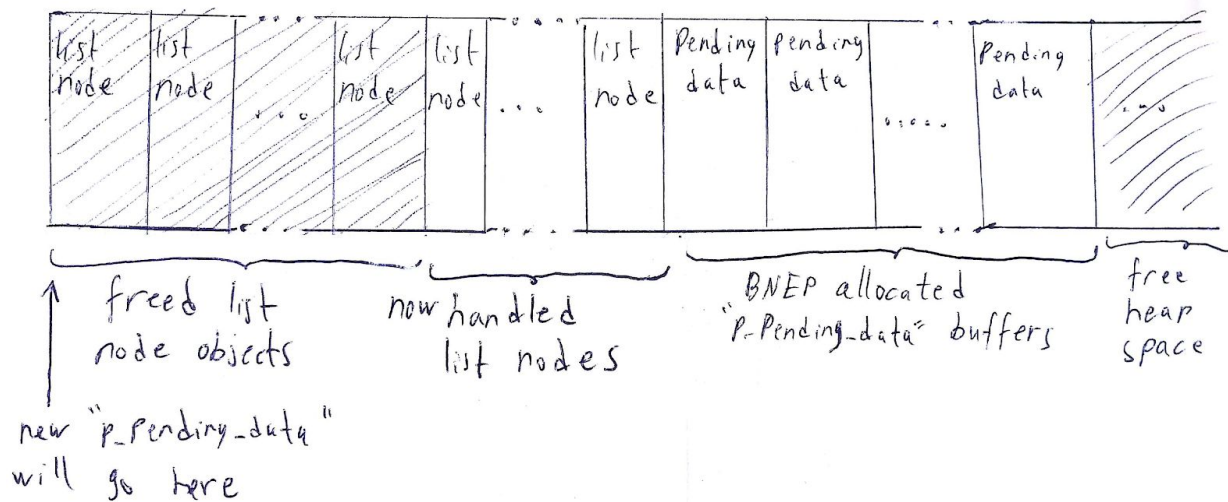 list
node
list
node
...
list
node
list
node
...
list
node
Pending
data
pending
data
.....
Pending
data
...
freed list
node objects
now handled
list nodes
BNEP allocated
"P_Pending_data" buffers
free
heap
space
new "p_Pending_data"
will go here